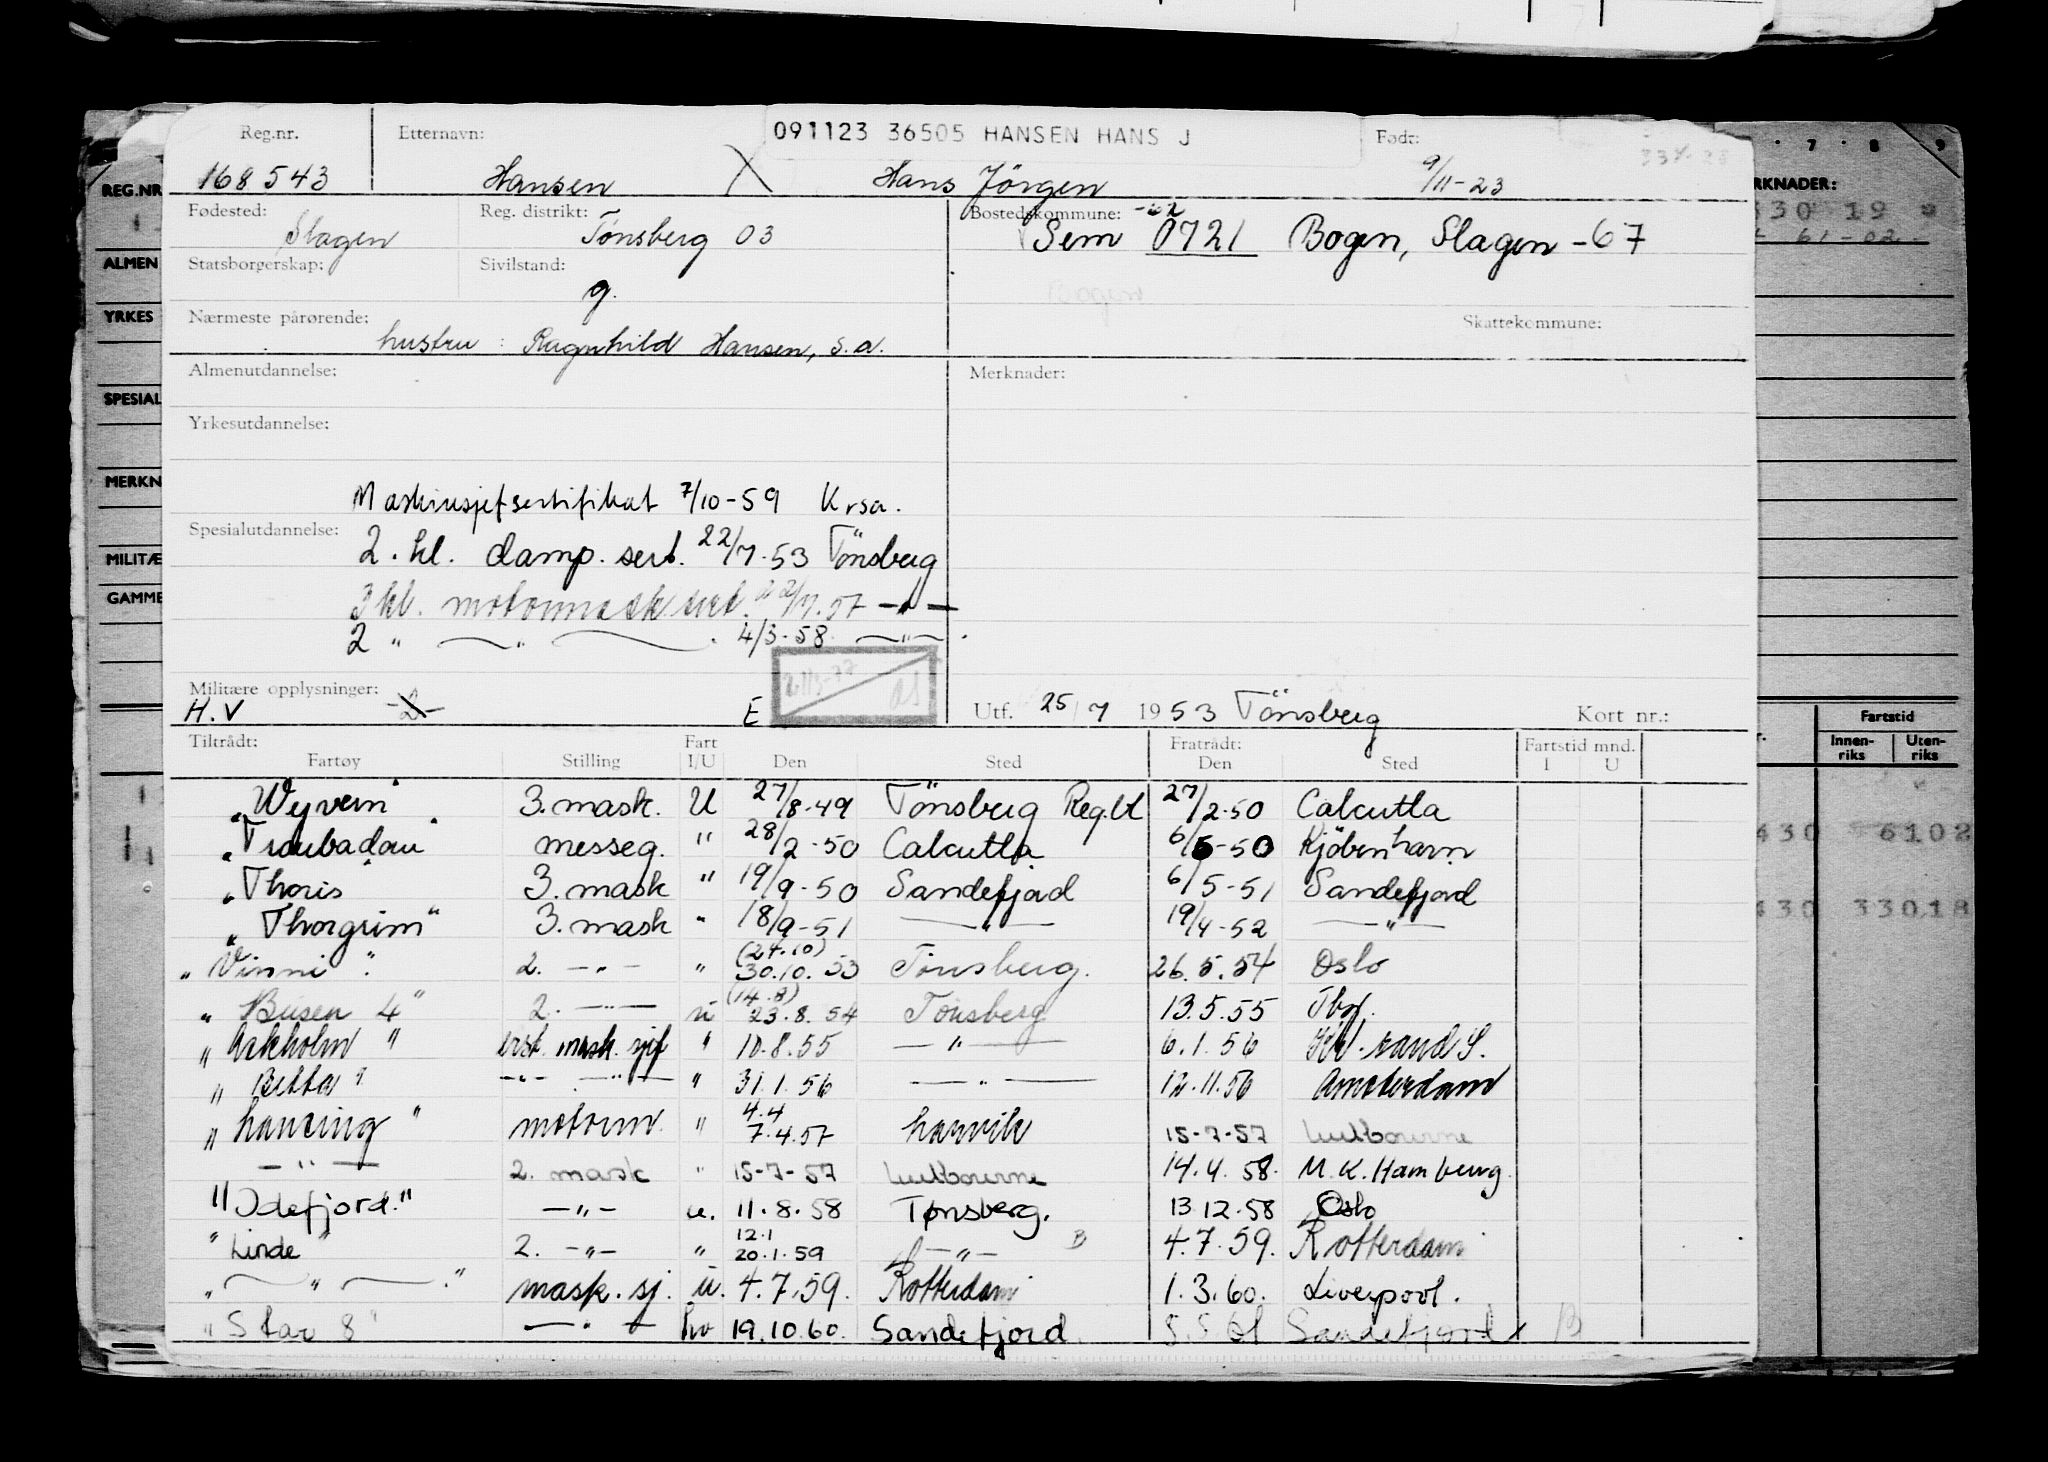 Reg.nr. Etternavn: 091123 36505 HANSEN HANS J Født:
168543 Hansen X Hans Jörgen 9/11-23
Fødested: Reg. distrikt: Bostedskommune: -62
Slagen Tönsberg 03 Sem 0721 Bogen, Slagen -67
Statsborgerskap: Sivilstand:
g.
Nærmeste pårørende: Skattekommune:
hustru : Ragnhild Hansen, s.a.
Almenutdannelse: Merknader:
Yrkesutdannelse:
Maskinsjefsertifikat 7/10-59 Krsa.
Spesialutdannelse:
2. kl. damp. sert. 22/7-53 Tönsberg
3 kl. motormask sert. 22/7.57 -"-
2 " -"- 4/3-58 -"-.
Militære opplysninger: 
H.V -2- E Utf. 25/7 1953 Tönsberg Kort nr.:
Tiltrådt: Fart Fratrådt: Fartstid mnd.
Fartøy Stilling I/U Den Sted Den Sted I U
"Wyvern" 3. mask. U 27/8-49 Tönsberg Reg.bl 27/2-50 Calcutta
"Troubadour" messeg. " 28/2-50 Calcutta 6/5-50 Kjöbenhavn
"Thoris" 3. mask " 19/9-50 Sandefjord 6/5-51 Sandefjord
"Thorgrim" 3. mask " 18/9-51 -"- 19/4-52 -"-
(24.10)
"Vinni" 2. -"- " 30.10.53 Tönsberg. 26.5.54 Oslo
(14.8)
"Busen 4" 2. -"- u 23.8.54 Tönsberg 13.5.55 Tbg.
"Askholm" best. mask. sjef " 10.8.55 -"- 6.1.56 Kr.sand S.
"Betta" -"- -"- " 31.1.56 -"- 12.11.56 Amsterdam
4.4
"Lancing" motorm. " 7.4.57 Larvik 15-7-57 Melbourne
-"- 2. mask " 15-7-57 Melbourne 14.4.58. M.K. Hamburg.
"Idefjord." -"- u. 11.8.58 Tønsberg. 13.12.58 Oslo
12.1
"Linde" 2. -"- " 20.1.59 -"- B 4.7.59. Rotterdam
" -"- " mask. sj. u. 4.7.59. Rotterdam 1.3.60. Liverpool.
"Star 8" -"- hv 19.10.60. Sandefjord. 5.5.61 Sandefjord B
REG.NR
ALMEN
YRKES
SPESIAL
MERKN
MILITÆ
GAMME
7 8 9
RKNADER:
430 19
61-02
Fartstid
Innen-riks Uten-riks
430 6102
430 33018